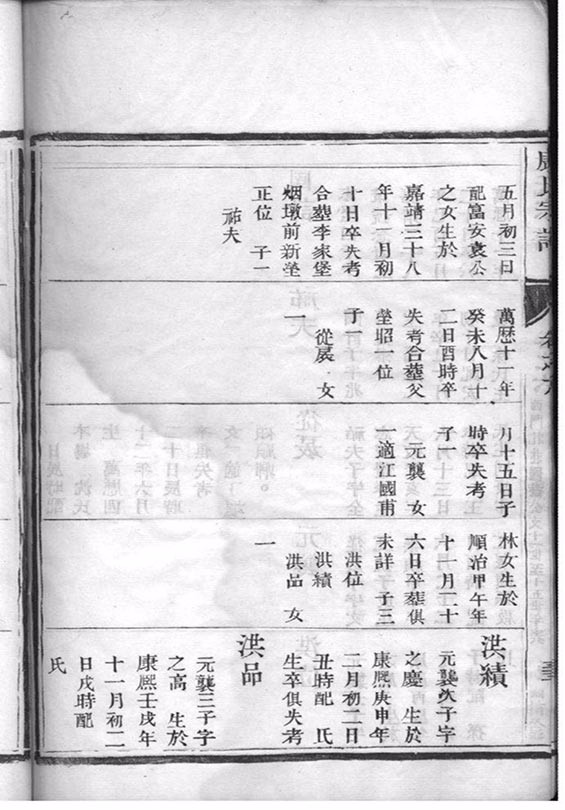 氏宗譜
五月初三日
配富安袁公
之女生於
嘉靖三十八
年十一月初
十日卒失考
合塟李家堡
烟墩前新塋
正位 子一
祐夫
萬歷十一年
癸未八月十
二日酉時卒
失考合塟父
塋昭一位
子一
從扆 女
一
月十五日子
時卒失考
子一
元襲 女
一適江國甫
林女生於
順治甲午年
十一月二十
六日卒塟俱
未詳 子三
洪位
洪績
洪品 女
一
洪績
元襲次子字
之慶 生於
康熙庚申年
二月初二日
丑時配 氏
生卒俱失考
洪品
元襲三子字
之高 生於
康熙壬戌年
十一月初二
日戌時配
氏